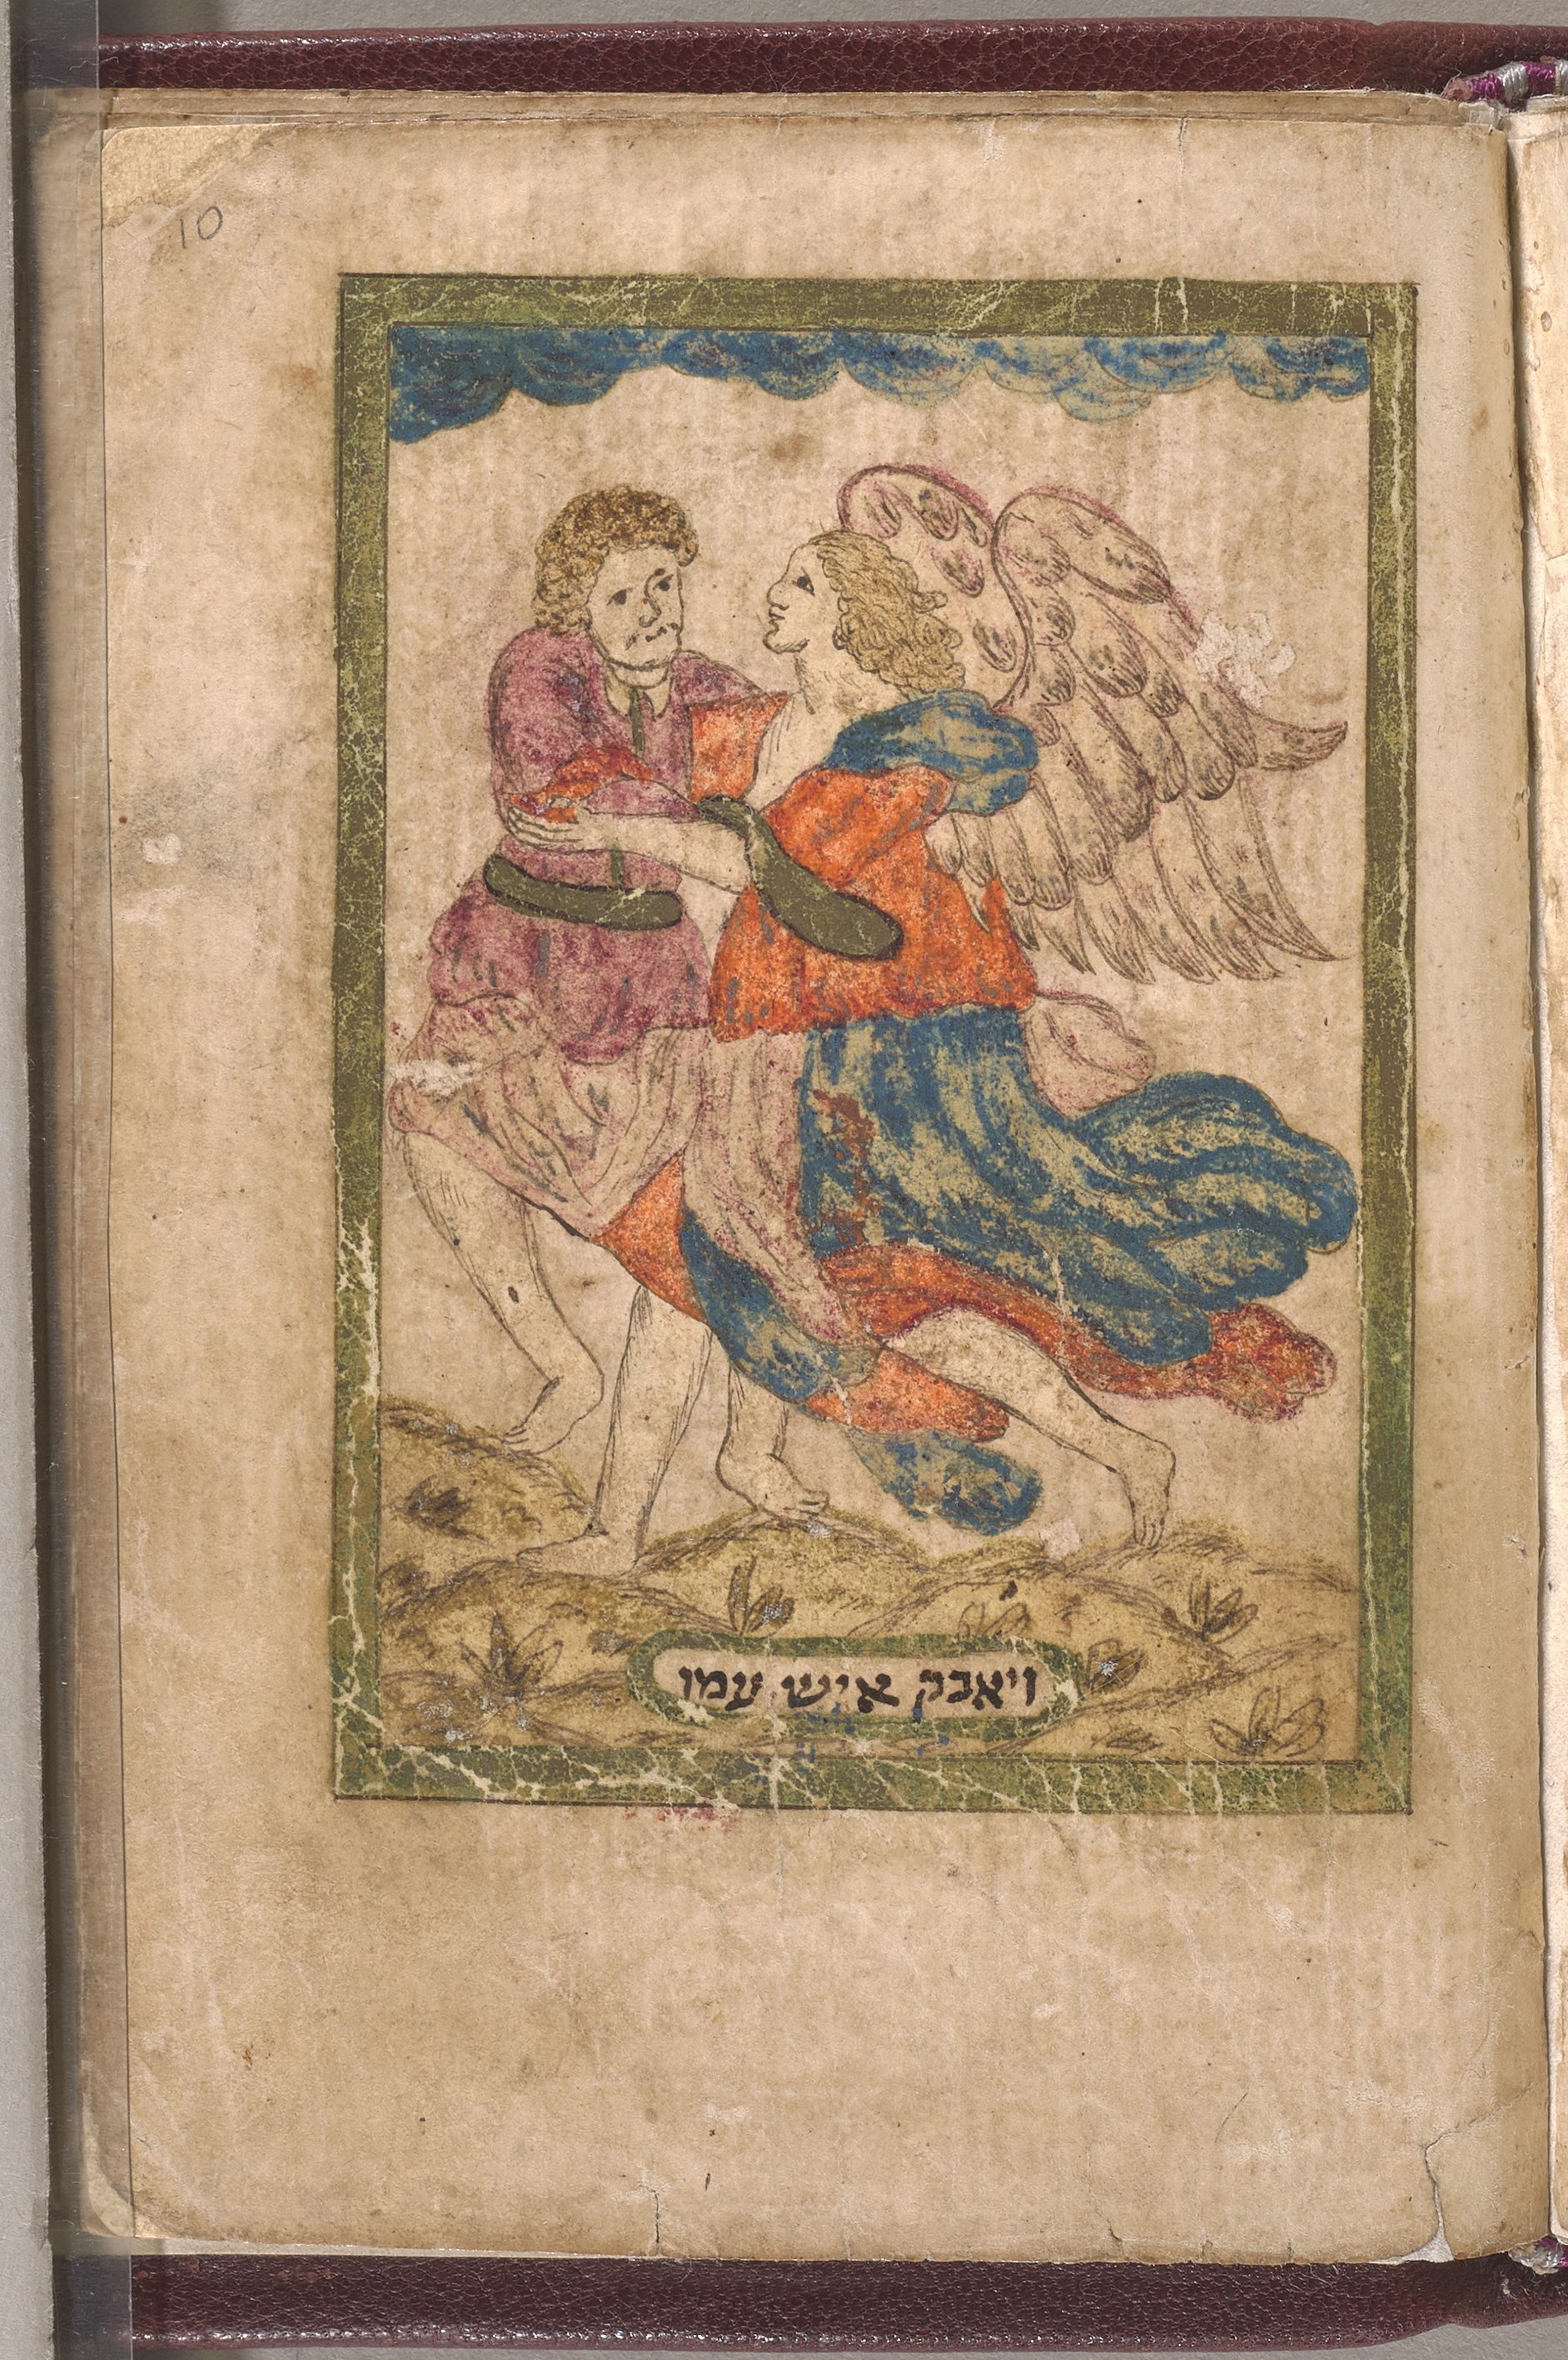 10
ויאבק איש עמו